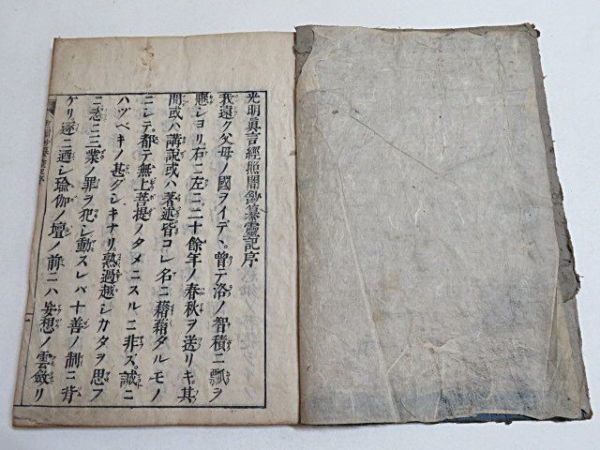 光明眞言經照闇鈔纂靈記序
我遠ク父母ノ國ヲイデヽ曾テ洛ノ智積ニ瓢ヲ
懸シヨリ右ニ左ニ二十餘年ノ春秋ヲ送リキ其
間或ハ講説或ハ著述皆コレ名ニ藉藉タルモノ
ニシテ都テ無上菩提ノタメニスルニ非ズ誠ニ
ハヅベキノ甚グシキナリ熟過越シカタヲ思フ
ニ恣ニ三業ノ罪ヲ犯シ動スレバ十善ノ制ニ背
ケリ遂ニ迺シ瑜伽ノ壇ノ前ニハ妄想ノ雲斂リ